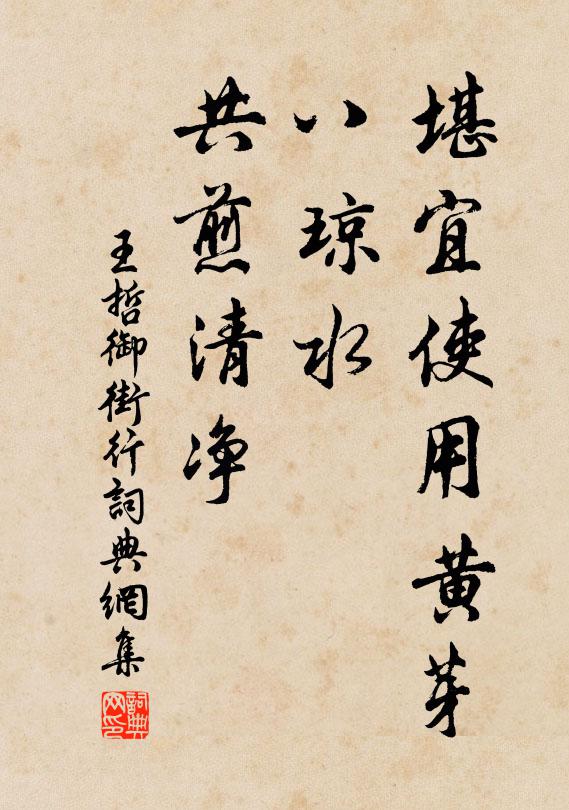 堪宜使用黄芽
八琼水
共煎清净
王哲御街行詞典網集
詞典
网印